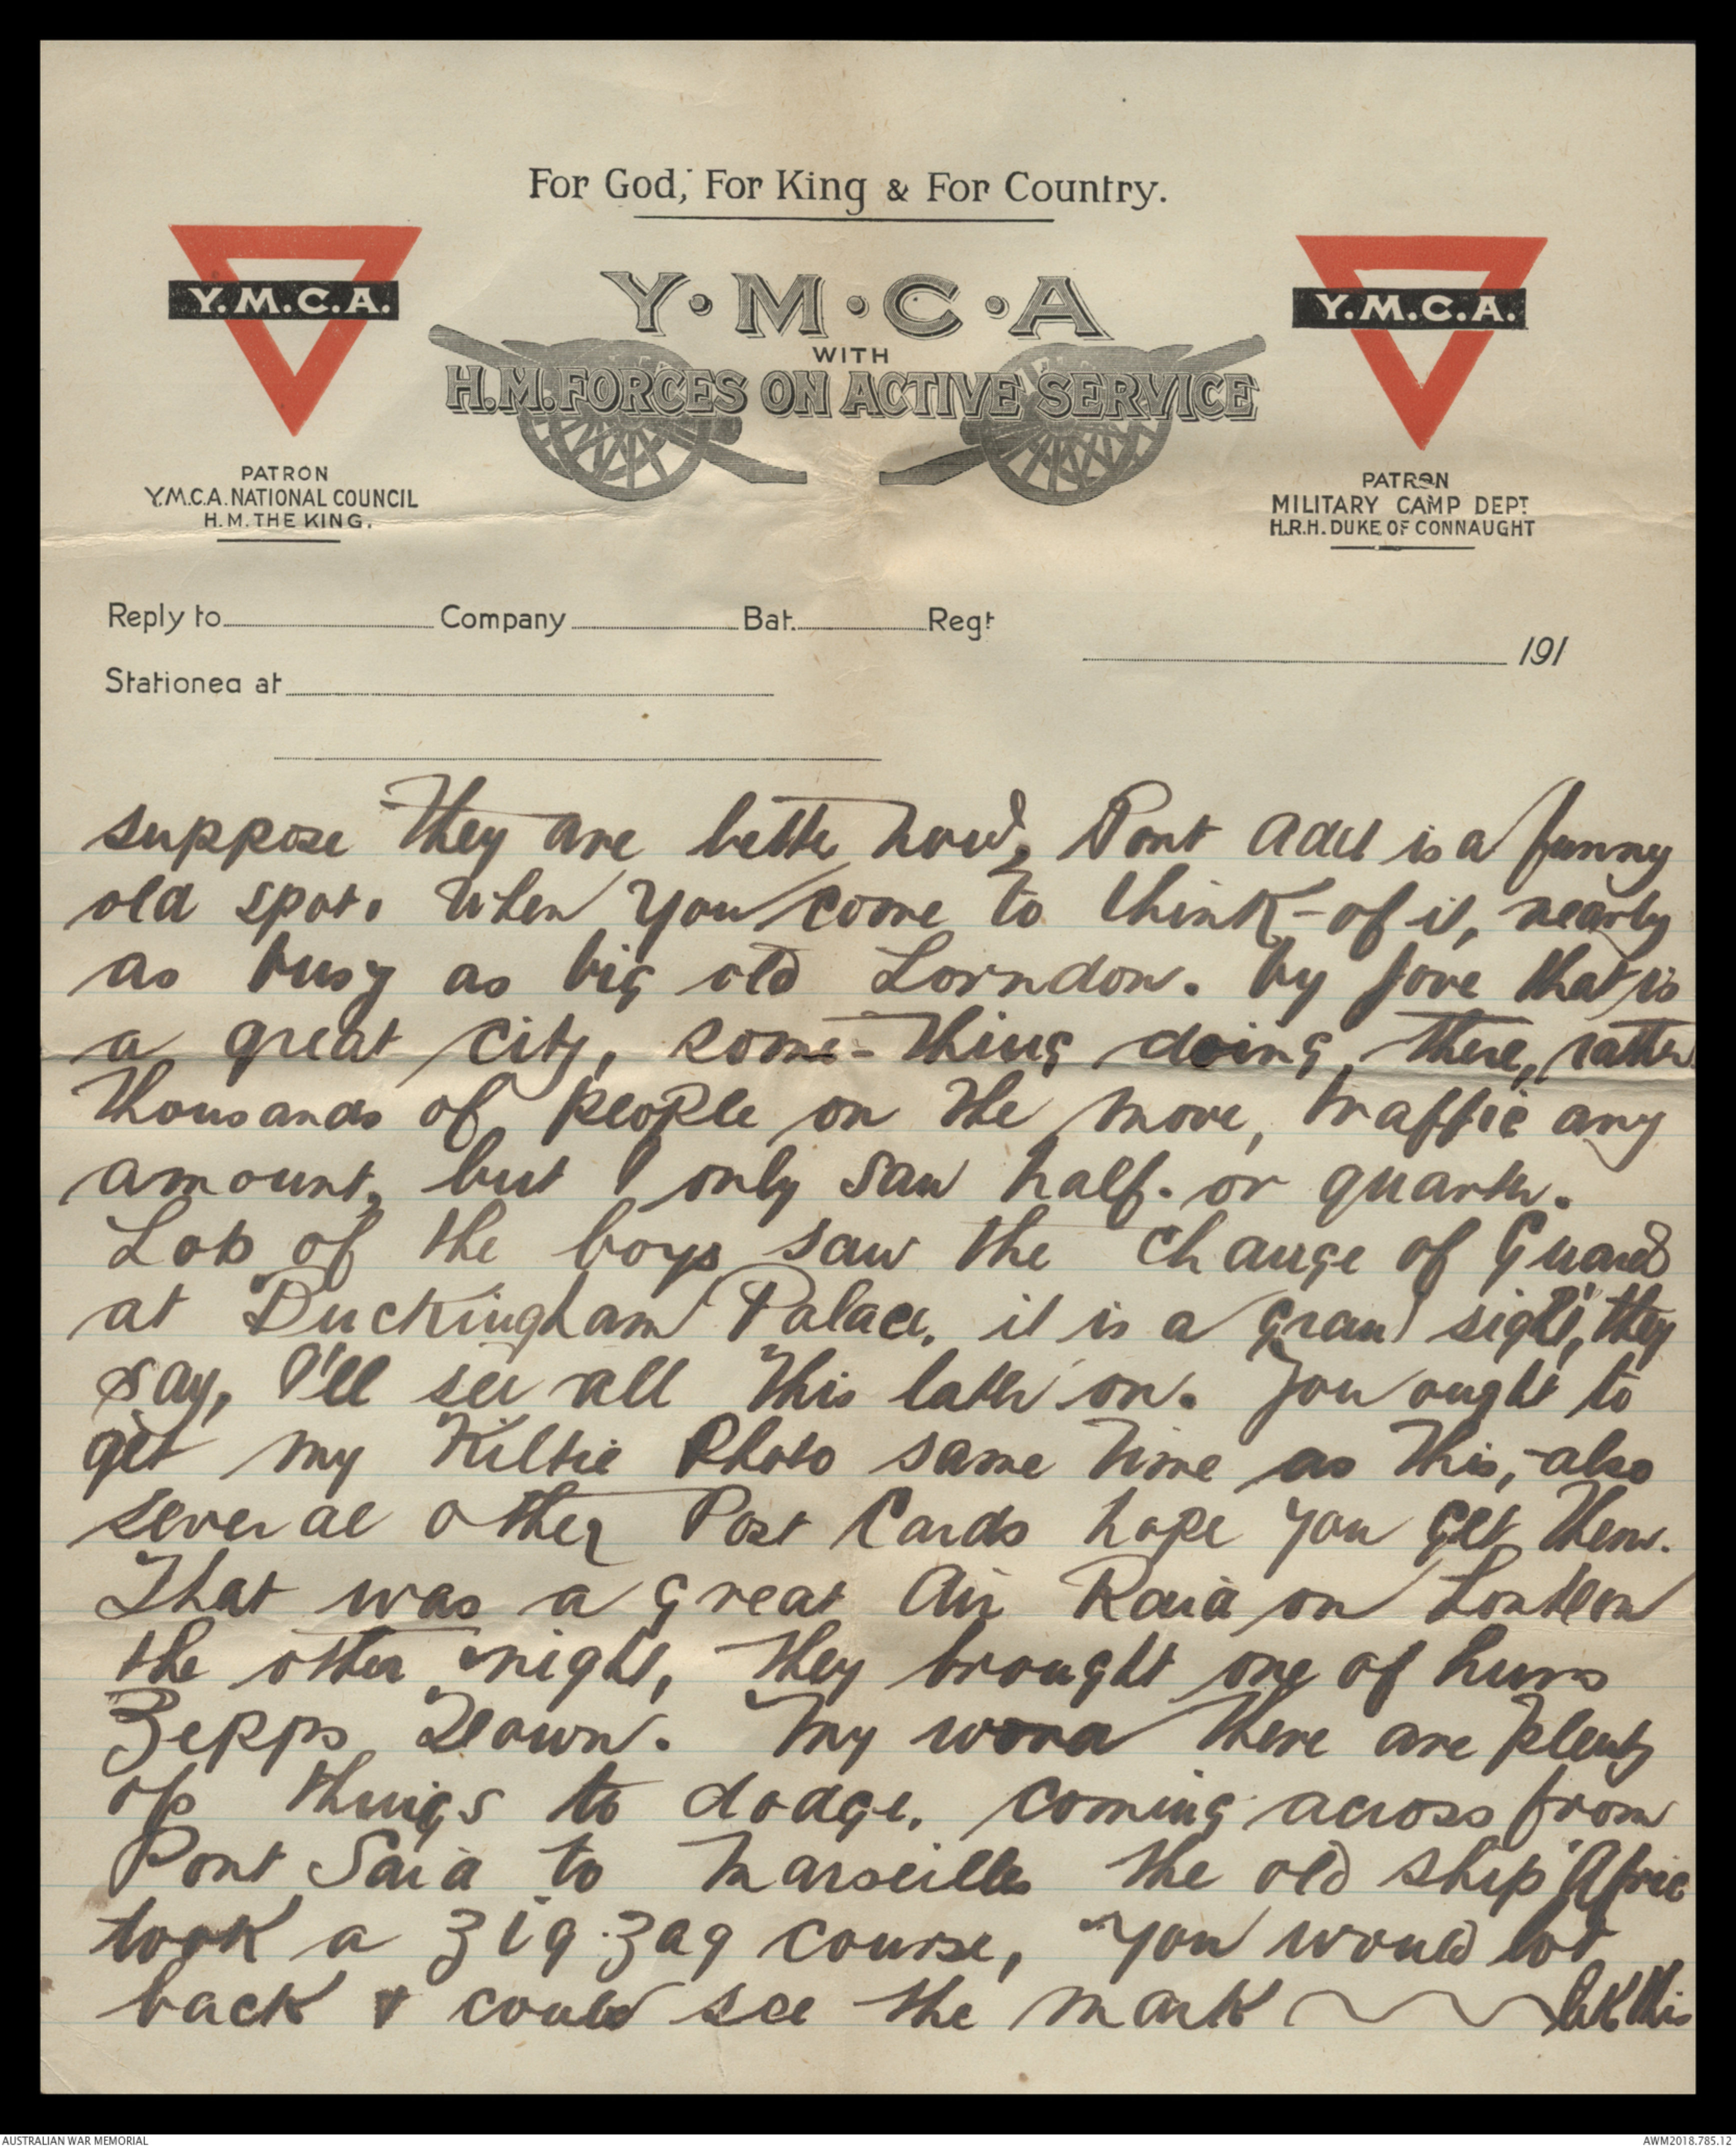 For God, For King & For Country.
Y.M.C.A.
Y.M.C.A
WITH
H.M. FORCES ON ACTIVE SERVICE
Y.M.C.A.
PATRON
Y.M.C.A. NATIONAL COUNCIL
H.M. THE KING.
PATRON
MILITARY CAMP DEPT.
H.R.H. DUKE OF CONNAUGHT
Reply to Company Bat. Regt
191
Stationed at
suppose they are better now, Port Adel is a funny
old spot. When you come to think - of it, nearly
as busy as big old Lorndon. by jove that is
a great city, some - thing doing there, rather
thousands of people on the move, traffic any
amount, but I only saw half. or quarter.
Lots of the boys saw the change of Guard
at Buckingham Palace. it is a grand sight, they
say, I'll see all this later on. You ought to
get my Kiltie Photo same time as this, - also
several other Post Cards hope you get them.
That was a great Air Raid on London
the other night, they brought one of huns
Zepps Down. My word there are plenty
of things to dodge. coming across from
Port Said to Marseilles the old ship "Afric
took a zig-zag course, you would look
back & could see the mark like this
AUSTRALIAN WAR MEMORIAL
AWM2018.785.12